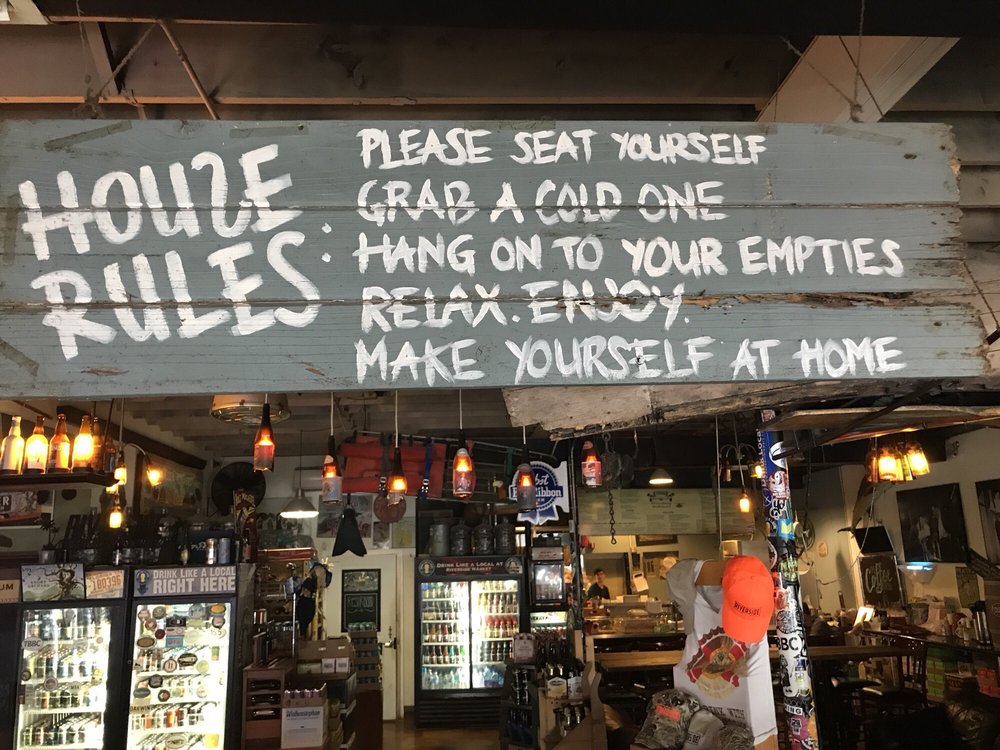 HOUSE
RULES:
PLEASE SEAT YOURSELF
GRAB A COLD ONE
HANG ON TO YOUR EMPTIES
RELAX. ENJOY.
MAKE YOURSELF AT HOME
Pabst
Blue Ribbon
DRINK LIKE A LOCAL
RIGHT HERE
DRINK LIKE A LOCAL AT
RIVERSIDE MARKET
RIVERSIDE